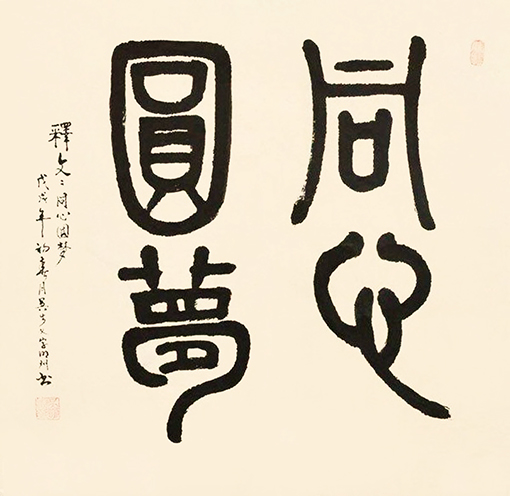 同心
圓夢
釋文：同心圆梦
戊戌年初春月